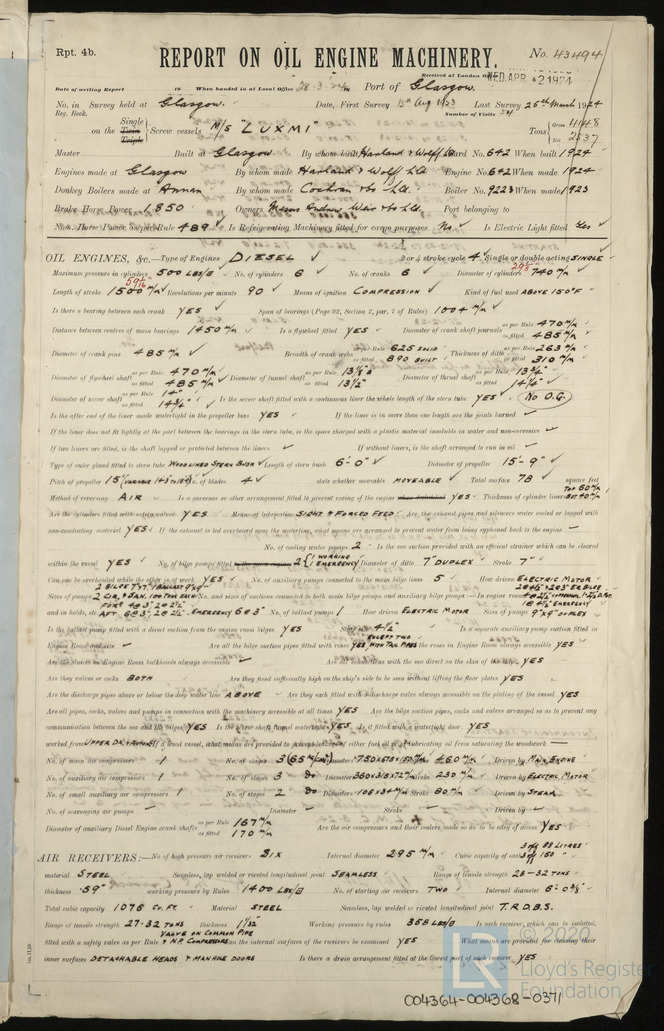 Rpt. 4b.
REPORT ON OIL ENGINE MACHINERY.
No. 43494
Received at London
WED. APR. 2 1924
Date of writing Report 19 When handed in at Local Office 28.3.24 Port of Glasgow.
No. in Survey held at Glasgow. Date, First Survey 15th Aug 1923 Last Survey 26th March 1924
Reg. Book. Number of Visits
on the Single Twin Triple Screw vessels M/S "LUXMI" Tons Gross 4148 No. 2537
Master Built at Glasgow By whom built Harland & Wolff Ld Yard No. 642 When built 1924
Engines made at Glasgow By whom made Harland & Wolff Ld. Engine No. 642 When made 1924
Donkey Boilers made at Annan By whom made Cochran & Co Ld. Boiler No. 9223 When made 1923
Brake Horse Power 1850 Owners Messrs Andrew Weir & Co Ld. Port belonging to
Nom. Horse Power as per Rule 489 Is Refrigerating Machinery fitted for cargo purposes No Is Electric Light fitted Yes
OIL ENGINES, &c.—Type of Engines DIESEL 2 or 4 stroke cycle 4 Single or double acting SINGLE
Maximum pressure in cylinders 500 LBS/□" No. of cylinders 6 No. of cranks 6 Diameter of cylinders 740 m/m
Length of stroke 1500 m/m Revolutions per minute 90 Means of ignition COMPRESSION Kind of fuel used ABOVE 150°F
Is there a bearing between each crank YES Span of bearings (Page 92, Section 2, par. 7 of Rules) 1004 m/m
Distance between centres of main bearings 1450 m/m Is a flywheel fitted YES Diameter of crank shaft journals as per Rule 470 m/m as fitted 485 m/m
Diameter of crank pins 485 m/m Breadth of crank webs as per Rule 625 SOLID as fitted 890 BUILT Thickness of ditto as per Rule 263 m/m as fitted 310 m/m
Diameter of flywheel shaft as per Rule 470 m/m as fitted 485 m/m Diameter of tunnel shaft as per Rule as fitted 13½" Diameter of thrust shaft as per Rule as fitted
Diameter of screw shaft as per Rule 14" as fitted 14¾" Is the screw shaft fitted with a continuous liner the whole length of the stern tube YES No O.G.
Is the after end of the liner made watertight in the propeller boss YES If the liner is in more than one length are the joints burned
If the liner does not fit tightly at the part between the bearings in the stern tube, is the space charged with a plastic material insoluble in water and non-corrosive
If two liners are fitted, is the shaft lapped or protected between the liners If without liners, is the shaft arranged to run in oil
Type of outer gland fitted to stern tube WOOD LINED STERN BUSH Length of stern bush 6'-0" Diameter of propeller 15'-9"
Pitch of propeller No. of blades 4 state whether moveable MOVEABLE Total surface 78 square feet
Method of reversing AIR Is a governor or other arrangement fitted to prevent racing of the engine YES Thickness of cylinder liners TOP 60 m/m BOT 40 m/m
Are the cylinders fitted with safety valves YES Means of lubrication SIGHT & FORCED FEED Are the exhaust pipes and silencers water cooled or lagged with
non-conducting material YES If the exhaust is led overboard near the waterline, what means are arranged to prevent water from being syphoned back to the engine
No. of cooling water pumps 2 Is the sea suction provided with an efficient strainer which can be cleared
within the vessel YES No. of bilge pumps fitted 2 { 1 WORKING 1 EMERGENCY Diameter of ditto 7" DUPLEX Stroke 7"
Can one be overhauled while the other is at work YES No. of auxiliary pumps connected to the main bilge lines 5 How driven ELECTRIC MOTOR
Sizes of pumps No. and sizes of suctions connected to both main bilge pumps and auxiliary bilge pumps:—In engine room
and in holds, etc. No. of ballast pumps 1 How driven ELECTRIC MOTOR Sizes of pumps 9"x9" DUPLEX
Is the ballast pump fitted with a direct suction from the engine room bilges YES State size 4½ Is a separate auxiliary pump suction fitted in
Engine Room and size Are all the bilge suction pipes fitted with roses YES EXCEPT TWO WITH TAIL PIPES Are the roses in Engine Room always accessible YES
Are the sluices on Engine Room bulkheads always accessible Are all connections with the sea direct on the skin of the ship YES
Are they valves or cocks BOTH Are they fixed sufficiently high on the ship's side to be seen without lifting the floor plates YES
Are the discharge pipes above or below the deep water line ABOVE Are they each fitted with a discharge valve always accessible on the plating of the vessel YES
Are all pipes, cocks, valves and pumps in connection with the machinery accessible at all times YES Are the bilge suction pipes, cocks and valves arranged so as to prevent any
communication between the sea and the bilges YES Is the screw shaft tunnel watertight YES Is it fitted with a watertight door YES
worked from UPPER DK If a wood vessel, what means are provided to prevent leakage of either fuel oil or lubricating oil from saturating the woodwork
No. of main air compressors 1 No. of stages 3 Diameters Stroke 460 m/m Driven by MAIN ENGINE
No. of auxiliary air compressors 1 No. of stages 3 do Diameters 360 x 315 x 72 m/m Stroke 230 m/m Driven by ELECTRIC MOTOR
No. of small auxiliary air compressors 1 No. of stages 2 do Diameters Stroke 80 m/m Driven by STEAM
No. of scavenging air pumps Diameter Stroke Driven by
Diameter of auxiliary Diesel Engine crank shafts as per Rule 167 m/m as fitted 170 m/m Are the air compressors and their coolers made so as to be easy of access YES
AIR RECEIVERS:—No. of high pressure air receivers SIX Internal diameter 295 m/m Cubic capacity of each
material STEEL Seamless, lap welded or riveted longitudinal joint SEAMLESS Range of tensile strength 28-32 TONS
thickness .59" working pressure by Rules 1400 LBS/□" No. of starting air receivers TWO Internal diameter
Total cubic capacity 1076 Cu. Ft. Material STEEL Seamless, lap welded or riveted longitudinal joint T. R. D. B. S.
Range of tensile strength 27-32 TONS thickness Working pressure by rules 358 LBS/□" Is each receiver, which can be isolated,
fitted with a safety valve as per Rule VALVE ON COMMON PIPE & H.P. COMPRESSOR Can the internal surfaces of the receivers be examined YES What means are provided for cleaning their
inner surfaces DETACHABLE HEADS & MANHOLE DOORS Is there a drain arrangement fitted at the lowest part of each receiver YES
© 2020
LR
Lloyd's Register
Foundation
004364-004368-0371